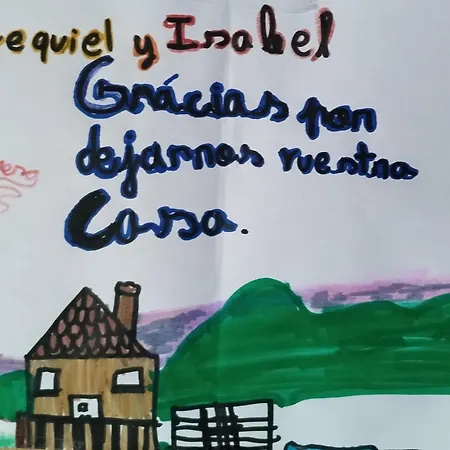 equiel y Isabel
Grácias por
dejarnos vuestra
Cassa.